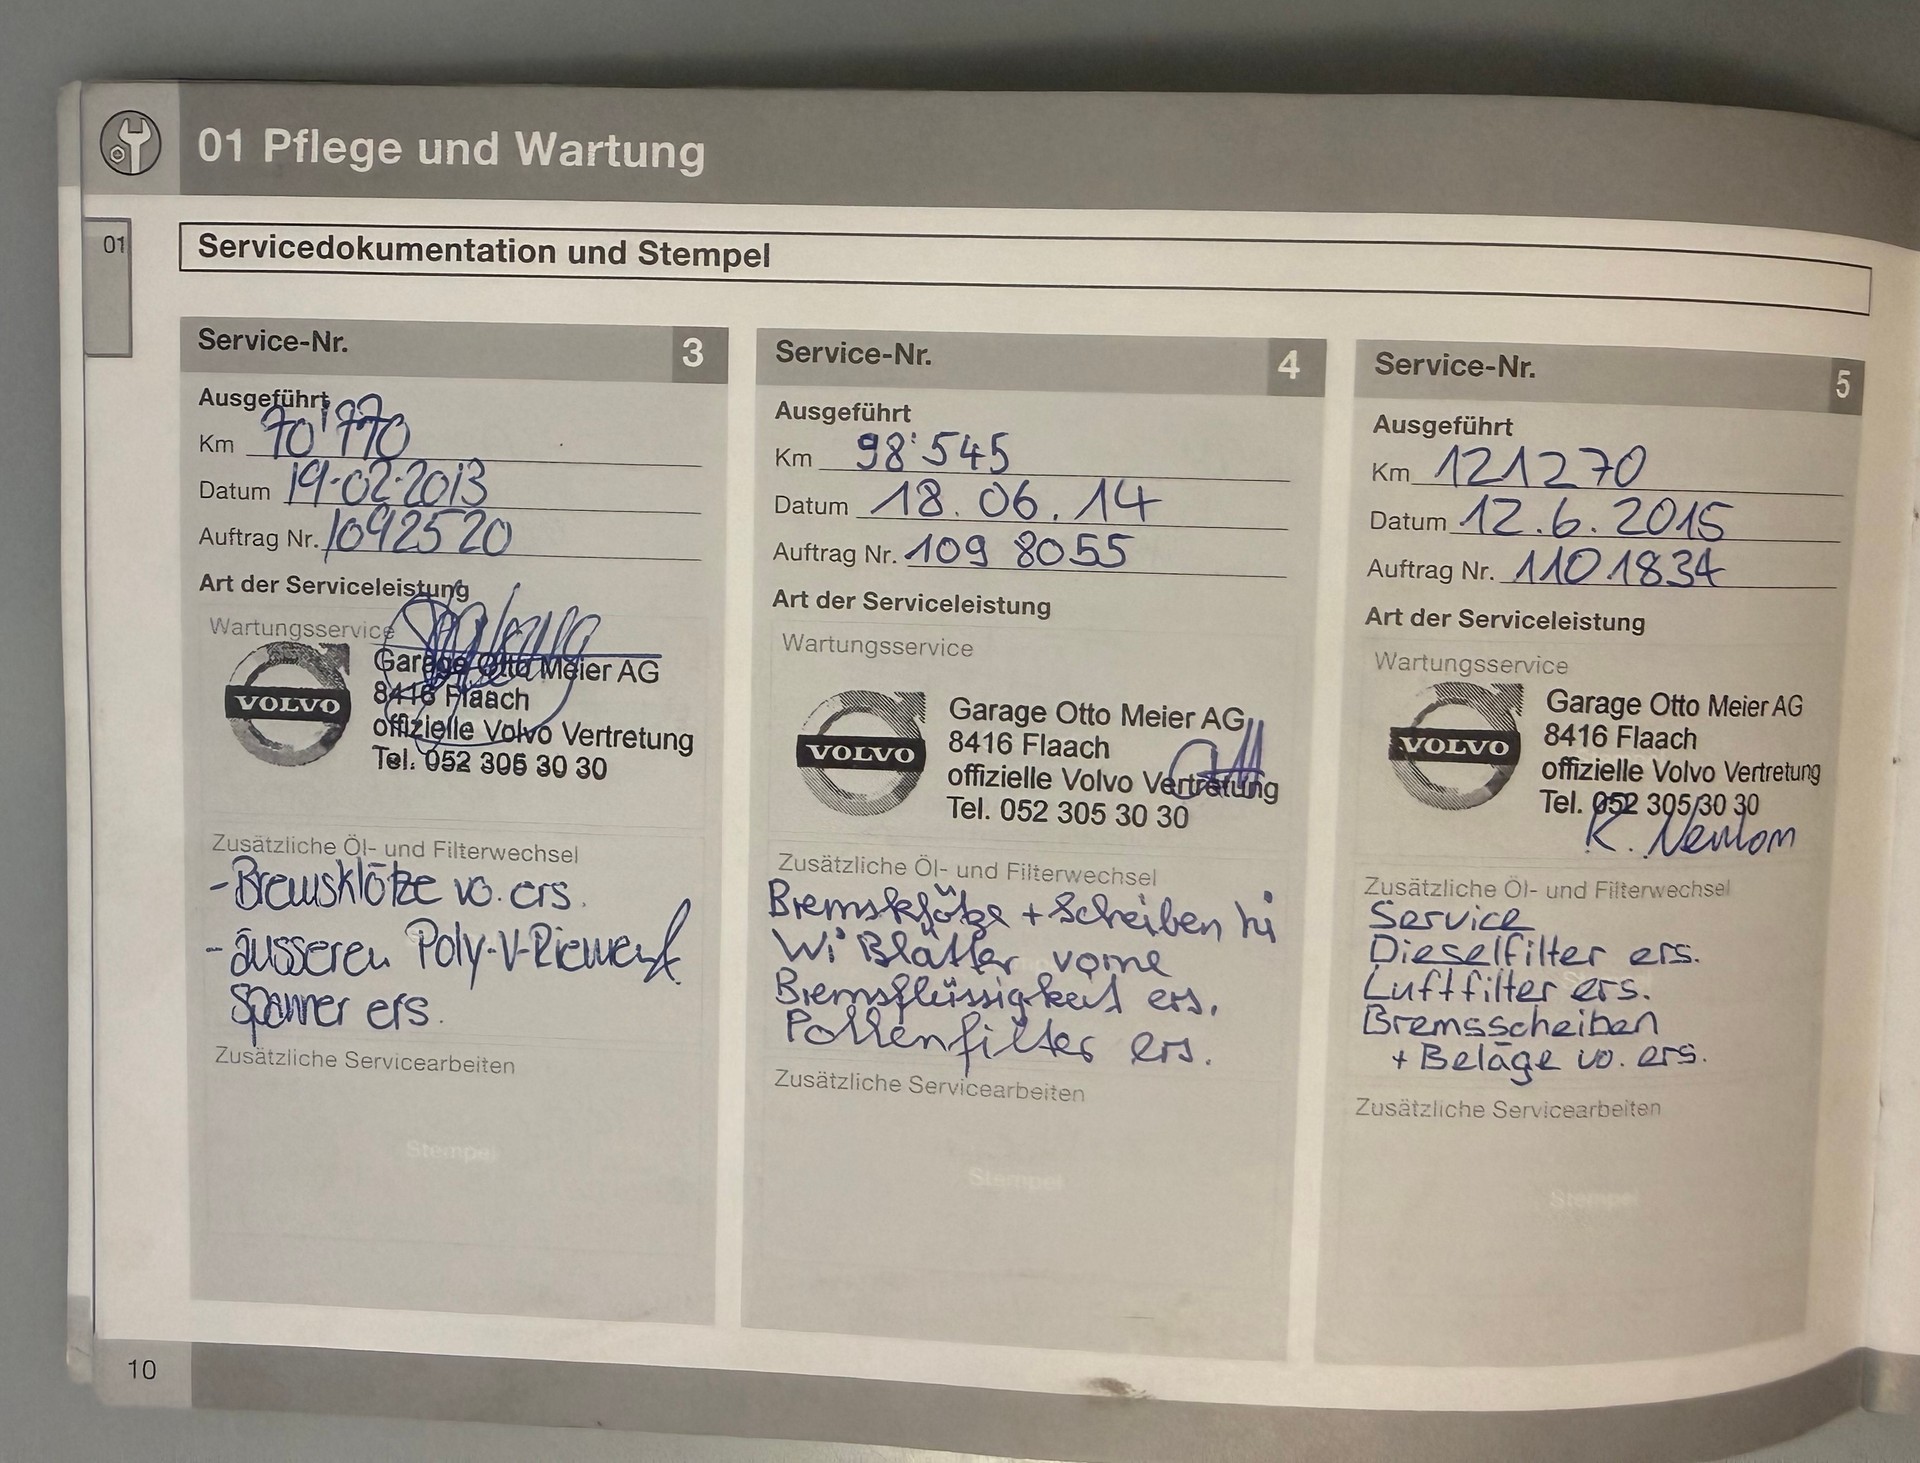 01 Pflege und Wartung
01
Servicedokumentation und Stempel
Service-Nr. 3
Ausgeführt
Km 70'770
Datum 19.02.2013
Auftrag Nr. 1092520
Art der Serviceleistung
Wartungsservice
VOLVO
Garage Otto Meier AG
8416 Flaach
offizielle Volvo Vertretung
Tel. 052 305 30 30
Zusätzliche Öl- und Filterwechsel
- Bremsklötze vo. ers.
- äusseren Poly-V-Riemen
Spanner ers.
Zusätzliche Servicearbeiten
Stempel
Service-Nr. 4
Ausgeführt
Km 98'545
Datum 18.06.14
Auftrag Nr. 109 8055
Art der Serviceleistung
Wartungsservice
VOLVO
Garage Otto Meier AG
8416 Flaach
offizielle Volvo Vertretung
Tel. 052 305 30 30
Zusätzliche Öl- und Filterwechsel
Bremsklötze + Scheiben hi
Wi Blätter vorne
Bremsflüssigkeit ers.
Pollenfilter ers.
Zusätzliche Servicearbeiten
Stempel
Service-Nr. 5
Ausgeführt
Km 121270
Datum 12.6.2015
Auftrag Nr. 1101834
Art der Serviceleistung
Wartungsservice
VOLVO
Garage Otto Meier AG
8416 Flaach
offizielle Volvo Vertretung
Tel. 052 305 30 30
Zusätzliche Öl- und Filterwechsel
Service
Dieselfilter ers.
Luftfilter ers.
Bremsscheiben
+ Beläge vo. ers.
Zusätzliche Servicearbeiten
Stempel
10